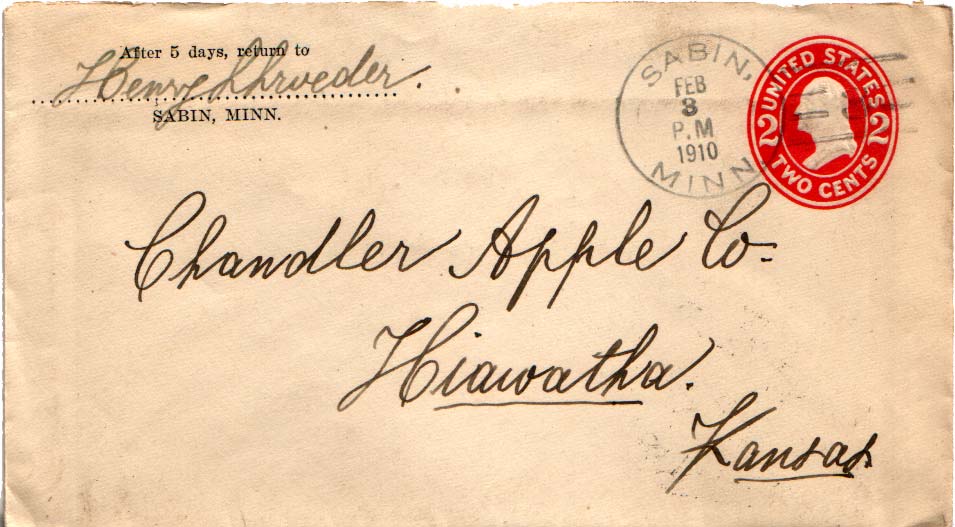 After 5 days, return to
Henry Schroeder.
SABIN, MINN.
SABIN,
FEB
8
P.M
1910
MINN.
UNITED STATES
2 2
TWO CENTS
Chandler Apple Co.
Hiawatha.
Kansas